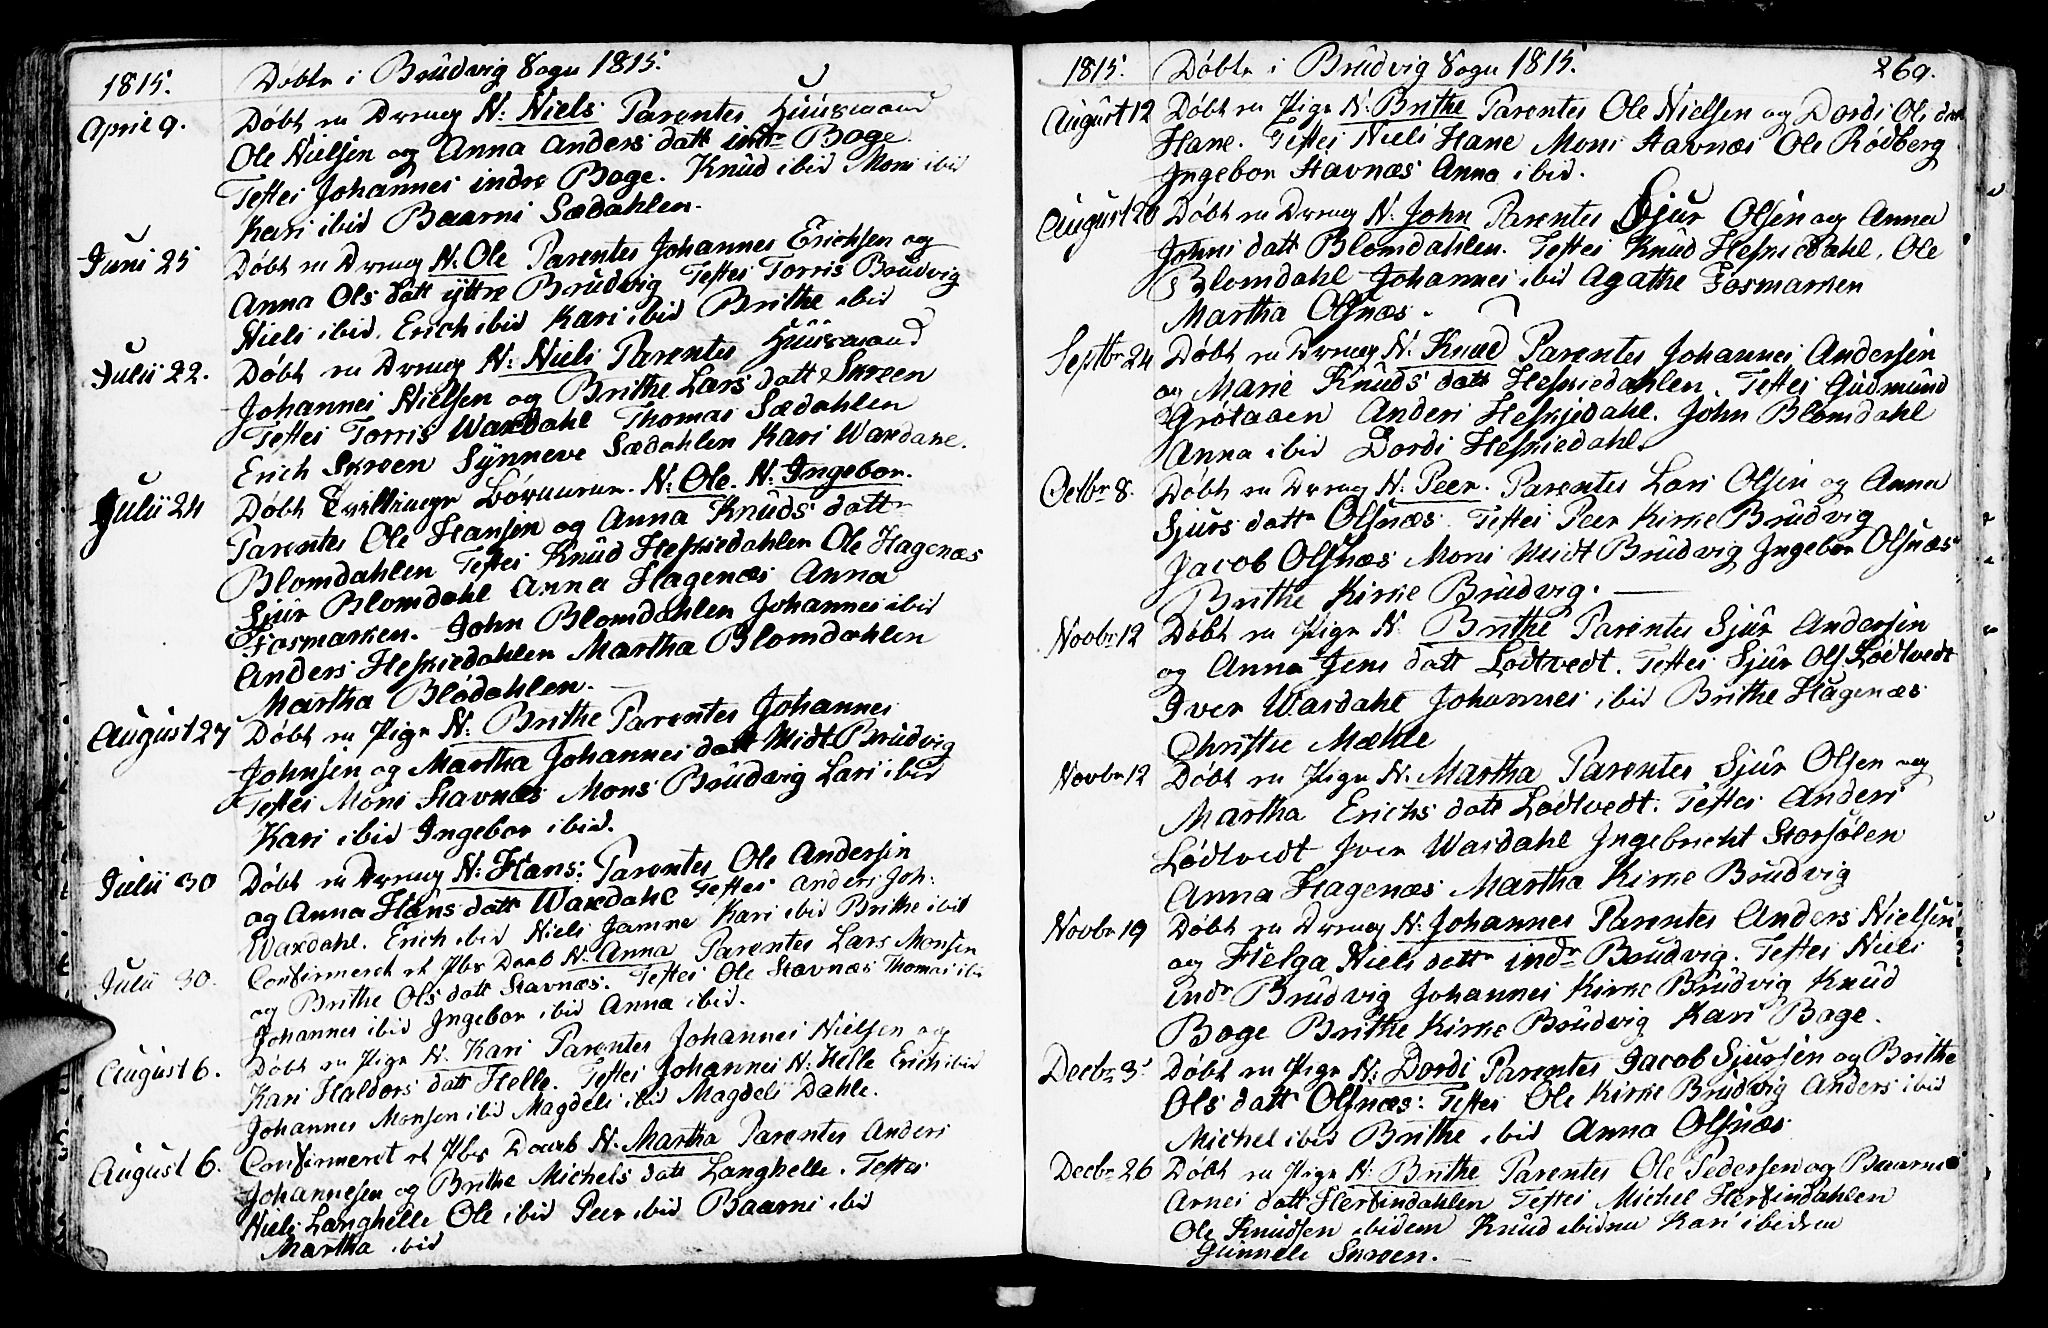 1815.
Døbte i Brúdvig Sogn 1815.
April 9.
Døbt en Dreng N: Niels Parentes Huusmand
Ole Nielsen og Anna Anders datt indr Boge
Testes Johannes indre Boge. Knúd ibid Mons ibid
Kari ibid Baarni Sædahlen.
Juni 25
Døbt en Dreng N: Ole Parentes Johannes Erichsen og
Anna Ols datt ÿttre Brúdvig Testes Torris Brúdvig
Niels ibid. Erich ibid Kari ibid Brithe ibid
Julii 22.
Døbt en Dreng N: Niels Parentes Huusmand
Johannes Nielsen og Brithe Lars datt Skreen
Testes Torris Waxdahl Thomas Sædahlen
Erich Skreen Sÿnneve Sædahlen Kari Waxdahl.
Julii 24
Døbt Tvillinger Børnenes. N: Ole. N: Ingebor.
Parentes Ole Hansen og Anna Knúds datt
Blomdahlen Testes Knúd Heskiedahlen Ole Hagenæs
Sjúr Blomdahl Anna Hagenæs Anna
Fosmarken. John Blomdahlen Johannes ibid
Anders Heskiedahlen Martha Blomdahlen
Martha Blødahlen.
August 27
Døbt en Pige N: Brithe Parentes Johannes
Johnsen og Martha Johannes datt Midt Brúdvig
Testes Mons Stavnæs Mons Brúdvig Lars ibid
Kari ibid Ingebor ibid.
Julii 30
Døbt en Dreng N: Hans: Parentes Ole Andersen
og Anna Hans datt Waxdahl Testes Anders Joh:
Waxdahl. Erich ibid Niels Jamne Kari ibid Brithe ibid
Julii 30.
Confirmeret et Pbr Daab N: Anna Parentes Lars Monsen
og Brithe Ols datt Stavnæs. Testes Ole Stavnæs Thomas ibi
Johannes ibid Ingebor ibid Anna ibid.
August 6.
Døbt en Pige N. Kari Parentes Johannes Nielsen og
Kari Haldors datt Helle. Testes Johannes N: Helle Erich ibid
Johannes Monsen ibid Magdeli ibid Magdeli Dahle.
August 6.
Confirmeret et Pbr Daab N. Martha Parentes Anders
Johannesen og Brithe Michels datt Langhelle. Testes
Niels Langhelle Ole ibid Peer ibid Baarni ibid
Martha ibid
1815.
Døbte i Brúdvig Sogn 1815.
269.
August 12
Døbt en Pige N: Brithe Parentes Ole Nielsen og Dordi Ols datt
Hane. Testes Niels Hane Mons Stavnæs Ole Rødberg
Ingebor Stavnæs Anna ibid.
August 20
Døbt en Dreng N: John Parentes Sjúr Olsen og Anna
Johns datt Blomdahlen. Testes Knúd Heskiedahl, Ole
Blomdahl Johannes ibid Agathe Fosmarken
Martha Olsnæs.
Septbr 24
Døbt en Dreng N: Knúd Parentes Johannes Andersen
og Marie Knúds datt Heskiedahlen. Testes Gúdmúnd
Grotaaen Anders Heskjedahl. John Blomdahl
Anna ibid Dordi Heskiedahl.
Octbr 8.
Døbt en Dreng N: Peer. Parentes Lars Olsen og Anna
Sjurs datt Olsnæs. Testes Peer Kirke Brúdvig
Jacob Olsnæs Mons Midt Brúdvig Ingebor Olsnæs
Brithe Kirke Brúdvig.
Novbr 12
Døbt en Pige N. Brithe Parentes Sjúr Andersen
og Anna Jens datt Lodtvedt. Testes Sjúr Ols Lodtvedt
Iver Waxdahl Johannes ibid Brithe Hagenæs
Christie Mæhle
Novbr 12
Døbt en Pige N: Martha Parentes Sjúr Olsen og
Martha Erichs datt Lødtvedt. Testes Anders
Lødtvedt Iver Waxdahl Ingebricht Storsølen
Anna Hagenæs Martha Kirke Brúdvig
Novbr 19
Døbt en Dreng N: Johannes Parentes Anders Nielsen
og Helga Niels datt indr Brúdvig. Testes Niels
indr Brúdvig Johannes Kirke Brúdvig Knúd
Boge Brithe Kirke Brúdvig Kari Boge.
Decbr 3.
Døbt en Pige N: Dordi Parentes Jacob Sjursen og Brithe
Ols datt Olsnæs: Testes Ole Kirke Brúdvig Anders ibid
Michel ibid Brithe ibid Anna Olsnæs
Decbr 26
Døbt en Pige N: Brithe Parentes Ole Pedersen og Baarni
Arnes datt Herfindahlen Testes Michel Herfindahlen
Ole Knudsen ibidem Knúd ibidem Kari ibidem
Gúnnele Skreen.